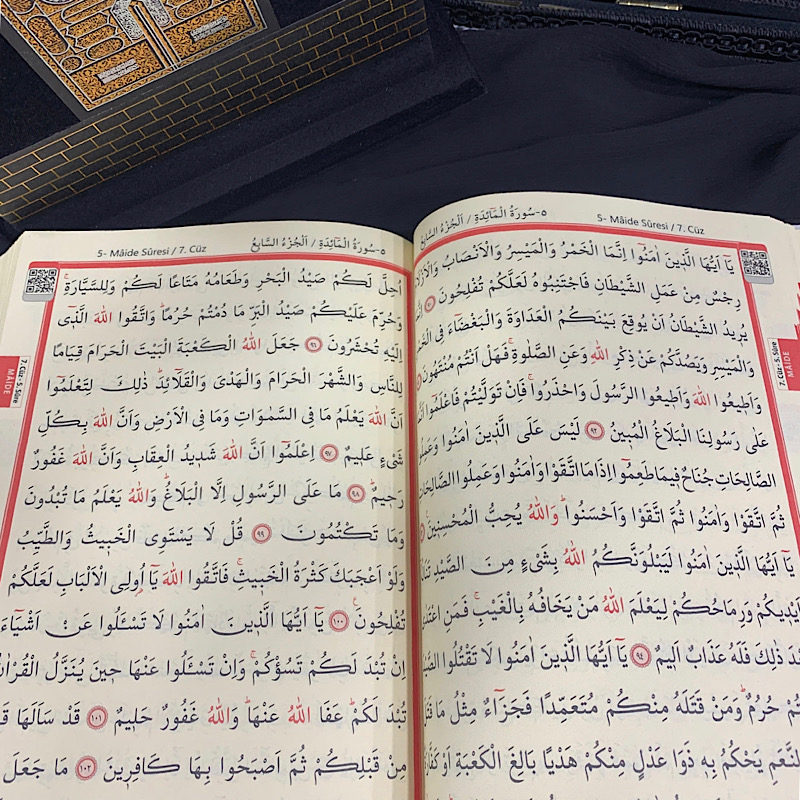 ٥-سُورَةُ الْمَآئِدَةِ / اَلْجُزْءُ السَّابِعُ
5- Mâide Sûresi / 7. Cüz
يَآ اَيُّهَا الَّذ۪ينَ اٰمَنُٓوا اِنَّمَا الْخَمْرُ وَالْمَيْسِرُ وَالْاَنْصَابُ
رِجْسٌ مِنْ عَمَلِ الشَّيْطَانِ فَاجْتَنِبُوهُ لَعَلَّكُمْ تُفْلِحُونَ
يُر۪يدُ الشَّيْطَانُ اَنْ يُوقِعَ بَيْنَكُمُ الْعَدَاوَةَ وَالْبَغْضَٓاءَ فِي
وَالْمَيْسِرِ وَيَصُدَّكُمْ عَنْ ذِكْرِ اللّٰهِ وَعَنِ الصَّلٰوةِۚ فَهَلْ اَنْتُمْ مُنْتَهُونَ
وَاَط۪يعُوا اللّٰهَ وَاَط۪يعُوا الرَّسُولَ وَاحْذَرُواۚ فَاِنْ تَوَلَّيْتُمْ فَاعْلَمُٓوا
عَلٰى رَسُولِنَا الْبَلَاغُ الْمُب۪ينُ ﴿٩٢﴾ لَيْسَ عَلَى الَّذ۪ينَ اٰمَنُوا وَعَمِلُوا
الصَّالِحَاتِ جُنَاحٌ ف۪يمَا طَعِمُٓوا اِذَا مَا اتَّقَوْا وَاٰمَنُوا وَعَمِلُوا الصَّالِحَاتِ
ثُمَّ اتَّقَوْا وَاٰمَنُوا ثُمَّ اتَّقَوْا وَاَحْسَنُواۜ وَاللّٰهُ يُحِبُّ الْمُحْسِن۪ينَ
يَآ اَيُّهَا الَّذ۪ينَ اٰمَنُوا لَيَبْلُوَنَّكُمُ اللّٰهُ بِشَيْءٍ مِنَ الصَّيْدِ
اَيْد۪يكُمْ وَرِمَاحُكُمْ لِيَعْلَمَ اللّٰهُ مَنْ يَخَافُهُ بِالْغَيْبِۚ فَمَنِ
ذٰلِكَ فَلَهُ عَذَابٌ اَل۪يمٌ ﴿٩٤﴾ يَآ اَيُّهَا الَّذ۪ينَ اٰمَنُوا لَا تَقْتُلُوا
حُرُمٌۜ وَمَنْ قَتَلَهُ مِنْكُمْ مُتَعَمِّدًا فَجَزَٓاءٌ مِثْلُ مَا
النَّعَمِ يَحْكُمُ بِه۪ ذَوَا عَدْلٍ مِنْكُمْ هَدْيًا بَالِغَ الْكَعْبَةِ اَوْ
7. Cüz - 5. Sûre
MÂİDE
٥-سُورَةُ الْمَآئِدَةِ / اَلْجُزْءُ السَّابِعُ
5- Mâide Sûresi / 7. Cüz
اُحِلَّ لَكُمْ صَيْدُ الْبَحْرِ وَطَعَامُهُ مَتَاعًا لَكُمْ وَلِلسَّيَّارَةِۚ
وَحُرِّمَ عَلَيْكُمْ صَيْدُ الْبَرِّ مَا دُمْتُمْ حُرُمًاۜ وَاتَّقُوا اللّٰهَ الَّذ۪ٓي
اِلَيْهِ تُحْشَرُونَ ﴿٩٦﴾ جَعَلَ اللّٰهُ الْكَعْبَةَ الْبَيْتَ الْحَرَامَ قِيَامًا
لِلنَّاسِ وَالشَّهْرَ الْحَرَامَ وَالْهَدْيَ وَالْقَلَٓائِدَۜ ذٰلِكَ لِتَعْلَمُٓوا
اَنَّ اللّٰهَ يَعْلَمُ مَا فِي السَّمٰوَاتِ وَمَا فِي الْاَرْضِ وَاَنَّ اللّٰهَ بِكُلِّ
شَيْءٍ عَل۪يمٌ ﴿٩٧﴾ اِعْلَمُٓوا اَنَّ اللّٰهَ شَد۪يدُ الْعِقَابِ وَاَنَّ اللّٰهَ غَفُورٌ
رَح۪يمٌۜ ﴿٩٨﴾ مَا عَلَى الرَّسُولِ اِلَّا الْبَلَاغُۜ وَاللّٰهُ يَعْلَمُ مَا تُبْدُونَ
وَمَا تَكْتُمُونَ ﴿٩٩﴾ قُلْ لَا يَسْتَوِي الْخَب۪يثُ وَالطَّيِّبُ
وَلَوْ اَعْجَبَكَ كَثْرَةُ الْخَب۪يثِۚ فَاتَّقُوا اللّٰهَ يَآ اُو۬لِي الْاَلْبَابِ لَعَلَّكُمْ
تُفْلِحُونَ۟ ﴿١٠٠﴾ يَآ اَيُّهَا الَّذ۪ينَ اٰمَنُوا لَا تَسْـَٔلُوا عَنْ اَشْيَٓاءَ
اِنْ تُبْدَ لَكُمْ تَسُؤْكُمْۚ وَاِنْ تَسْـَٔلُوا عَنْهَا ح۪ينَ يُنَزَّلُ الْقُرْاٰنُ
تُبْدَ لَكُمْۜ عَفَا اللّٰهُ عَنْهَاۜ وَاللّٰهُ غَفُورٌ حَل۪يمٌ ﴿١٠١﴾ قَدْ سَاَلَهَا
مِنْ قَبْلِكُمْ ثُمَّ اَصْبَحُوا بِهَا كَافِر۪ينَ ﴿١٠٢﴾ مَا جَعَلَ
7. Cüz - 5. Sûre
MÂİDE